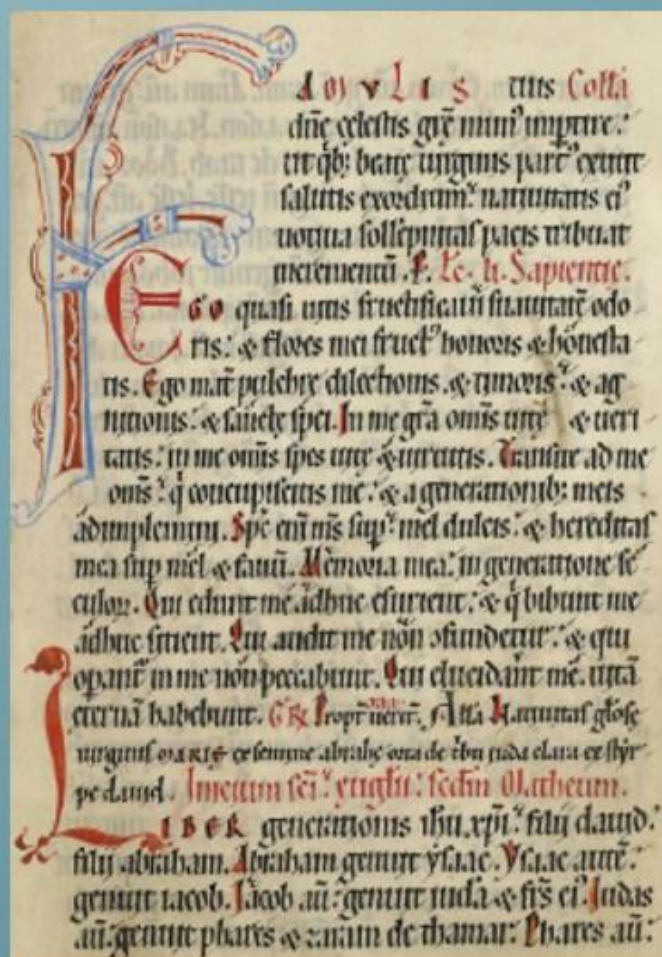 FAMULIS tuis Collā
dn̄e celestis grē mun' impertire.
ut qb; beatę uirginis part' extitit
salutis exordium: natiuitatis ei'
uotiua sollēpnitas pacis tribuat
incrementū. P. Lc̄. li. Sapientie.
EGO quasi uitis fructificaui suauitatē odo
ris: & flores mei fruct' honoris & honesta
tis. Ego mat̄ pulchrę dilectionis. & timoris: & ag
nitionis: & sanctę spei. In me gr̄a omīs uitę & ueri
tatis: in me omīs spes uitę & uirtutis. Transite ad me
om̄s: q̄ concupiscitis me: & a generationib; meis
adimplemini. Sp̄c enī m̄s sup̄ mel dulcis: & hereditas
mea sup mel & fauū. Memoria mea: in generatione se
culoꝝ. Qui edunt me adhuc esurient: & q̄ bibunt me
adhuc sitient. Qui audit me non ↄfundetur: & qui
opant̄ in me non peccabunt. Qui elucidant me. uitā
eternā habebunt. GR̄ Propt̄ ueritī. Alla Natiuitas glosę
uirginis MARIĘ ex semine abrahę orta de tbu iuda clara ex styr
pe dauid. Inicium sc̄i euglii: sec̄dm Matheum.
LIBER generationis ihu xp̄i: filij dauid:
filij abraham. Abraham genuit ysaac. Ysaac autē:
genuit iacob. Iacob aū: genuit iudā & fr̄s ei'. Iudas
aū: genuit phares & zaram de thamar. Phares aū: